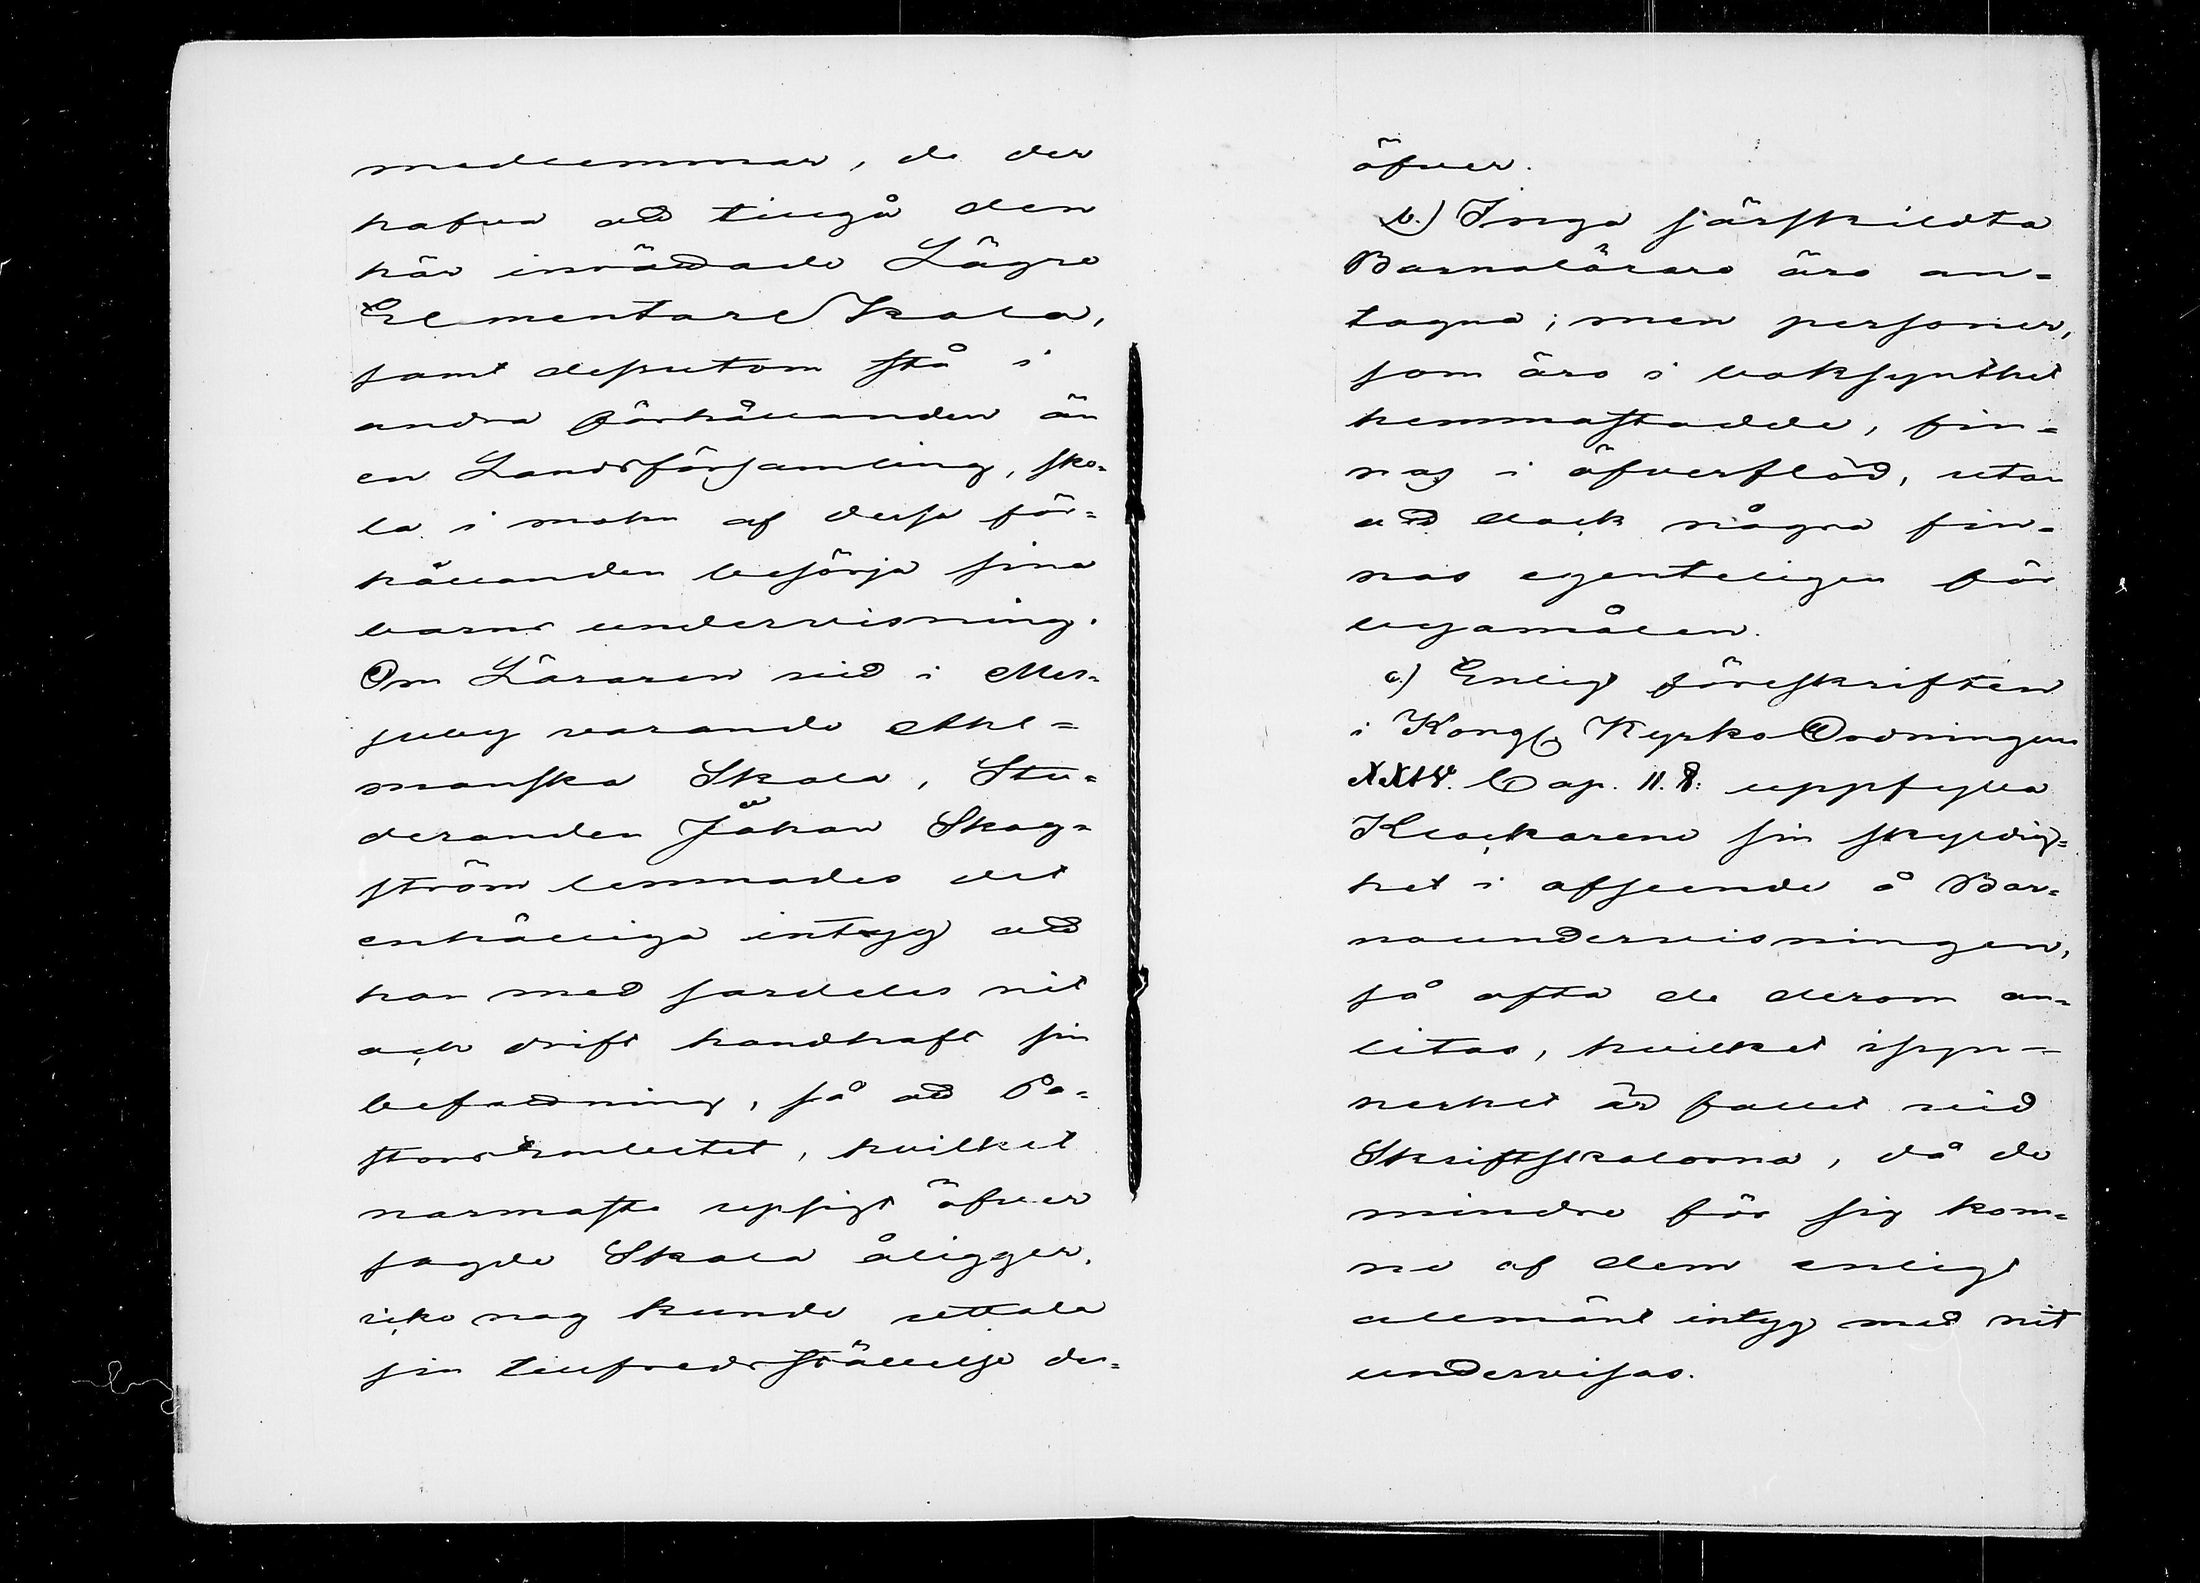 medlemmar, de der
hafva att tillgå den
här inrättade Lägre
ElementareSkola,
samt desutom stå i
andra förhållanden än
en Landsförsamling, sko-
la i mohn af dessa för-
hållanden besörja sina
barns undervisning.
Om Läraren vid i Mes-
juby varande Ahl-
manska Skola, Stu-
deranden Johan Skog-
ström lemnades det
enhälliga intyg att
han med särdeles nit
och drift handhaft sin
befattning, så att Pa-
storsEmbetet, hvilket
närmaste upsigt öfver
sagde Skola åligger,
icke nog kunde uttala
sin tillfredsställelse der-
öfver.
b.) Inga särskildta
Barnalärare äro an-
tagna; men personer,
som äro i boksynthet
hemmastadde, fin-
nas i öfverflöd, utan
att dock några fin-
nas egenteligen för
byamålen.
c.) Enligt föreskriften
i Kongl. KyrkoOrdningens
XXIV. Cap. 11. §: uppfylla
Klockarene sin skyldig-
het i afseende å Bar-
naundervisningen,
så ofta de derom an-
litas, hvilket isyn-
nerhet är fallet vid
Skriftskolorna, då de
mindre för sig kom-
ne af dem enligt
allmänt intyg med nit
undervisas.